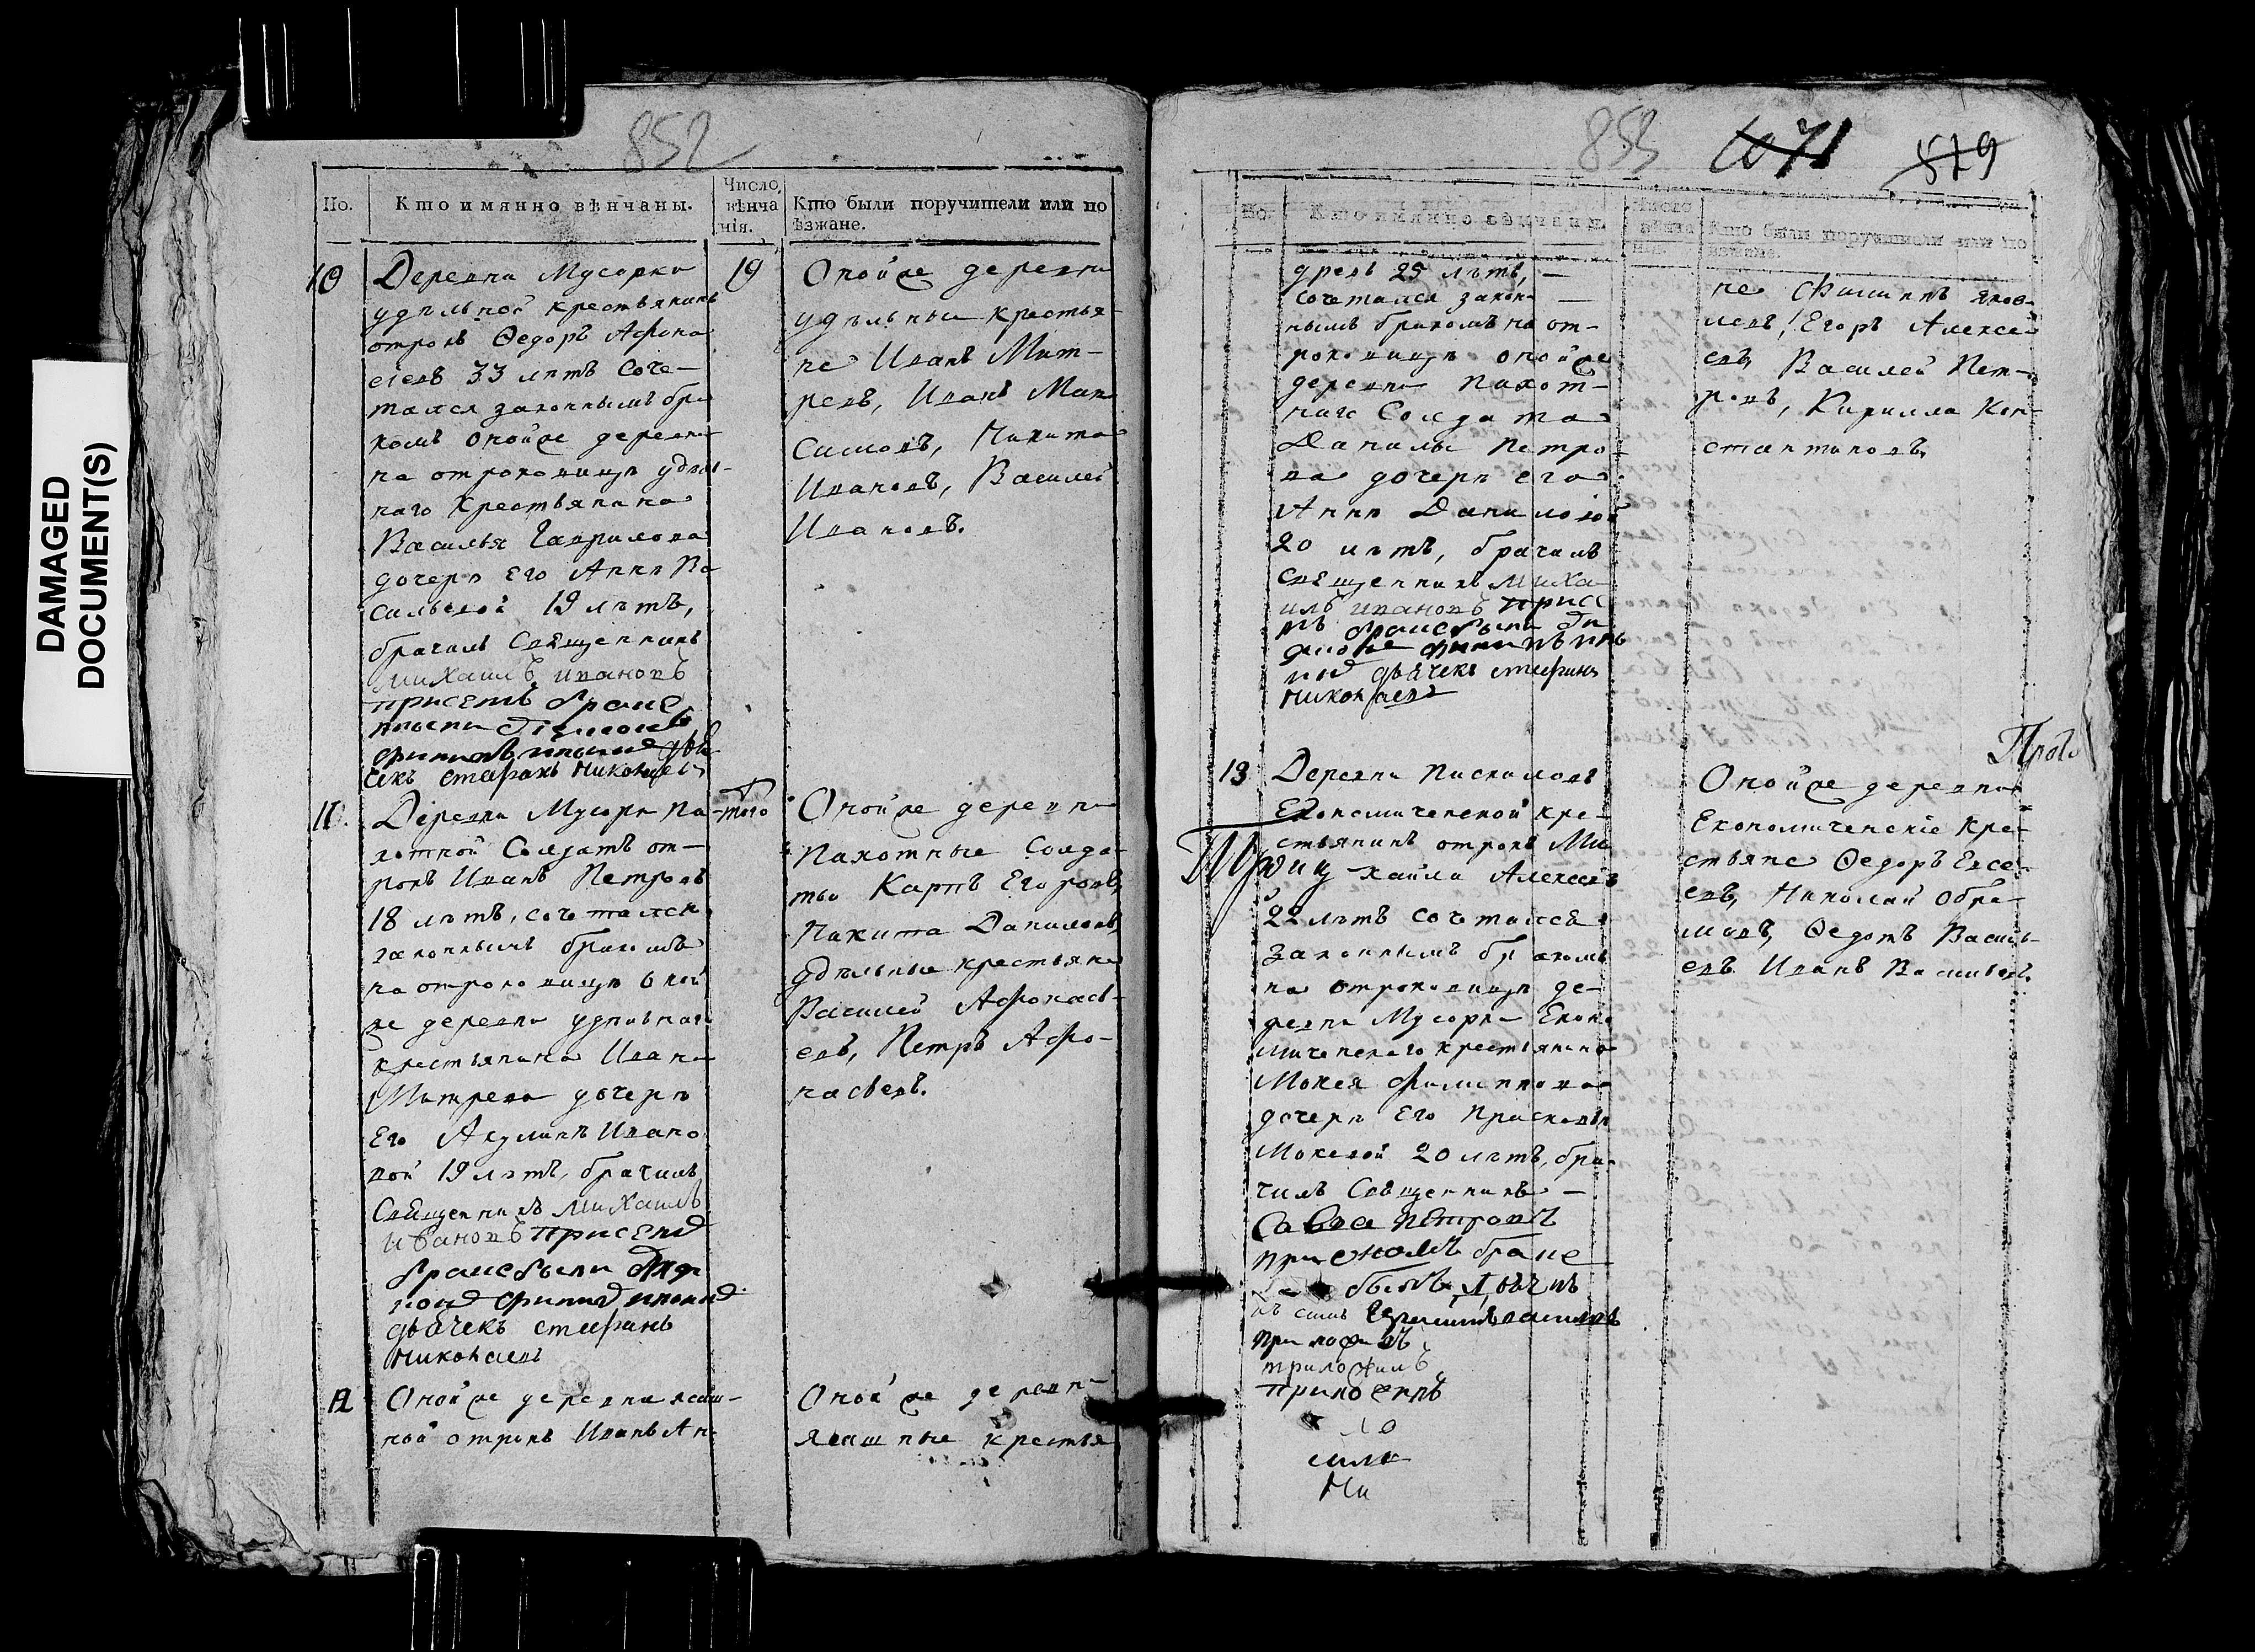 DAMAGED
DOCUMENT(S)
852
По.
Кто имянно вѣнчаны.
Число,
вѣнча
нія.
Кто были поручители или по
ѣзжане.
10
Деревни Мусорки
удѣльной крестьянинъ
отрокъ Ѳедоръ Афона
сіевъ 33 лѣтъ соче-
тался законнымъ бра
комъ оной же деревни
на отроковицѣ удѣль-
наго крестьянина
Василья Гаврилова
дочерѣ Его Аннѣ Ва
сильевой 19 лѣтъ,
брачилъ Священникъ
Михаилъ Ивановъ
при семъ браке
дья
чекъ стефанъ николаевъ
19
Оной же деревни
удѣльныи крестья-
не Иванъ Мит-
ревъ, Иванъ Мак
симовъ, Никита
Ивановъ, Василей
Ивановъ.
11.
Деревни Мусорки па-
хотной Солдатъ от-
рокъ Иванъ Петровъ
18 лѣтъ, сочетался
законнымъ бракомъ
на отроковицѣ оной
же деревни удѣльнаго
крестьянина Ивана
Митрева дочерѣ
Его Акулинѣ Ивано
вой 19 лѣтъ, брачилъ
Священникъ Михаилъ
Ивановъ при семъ
браке были
дьячекъ стефанъ
николаевъ
того
Оной же деревни
Пахотные Солда-
ты Карпъ Егоровъ,
Никита Даниловъ,
удѣльные крестьяне
Василей Афонась-
евъ, Петръ Афо-
насьевъ.
12
Оной же деревни ясаш-
ной отрокъ Иванъ Ан-
Оной же деревни
Ясашные крестья
853
1071
879
По.
Кто имянно вѣнчаны.
Число
вѣнча
нія.
Кто были поручители или по
ѣзжане.
дреевъ 25 лѣтъ, —
сочетался закон —
нымъ бракомъ на от-
роковицѣ оной же
деревни пахот-
наго Солдата
Данилы Петро-
ва дочерѣ его
Аннѣ Даниловой
20 лѣтъ, брачилъ
священникъ Миха
илъ Ивановъ при се
мъ браке были
дьячекъ стефанъ
николаевъ
не Филипъ Яков-
левъ, Егоръ Алексе-
евъ, Василей Пет-
ровъ, Кирилла Кон-
стантиновъ.
13
Деревни Пискаловъ
Економической кре-
стьянинъ отрокъ Ми
хайла Алексеевъ
22 лѣтъ сочетался
законнымъ бракомъ
на отроковицѣ де-
ревни Мусорки Еконо
мическаго крестьянина
Мокея Филиппова
дочерѣ Его Прасковьѣ
Мокевой 20 лѣтъ, бра-
чилъ Священникъ —
Савва Петровъ
при ономъ браке
былъ дьячокъ
приложилъ
ло
силе
Ни
Оной же деревни
Економическіе кре-
стьяне Ѳедоръ Евсе-
евъ, Николай Обра-
мовъ, Ѳедотъ Василь-
евъ Иванъ Васильевъ.